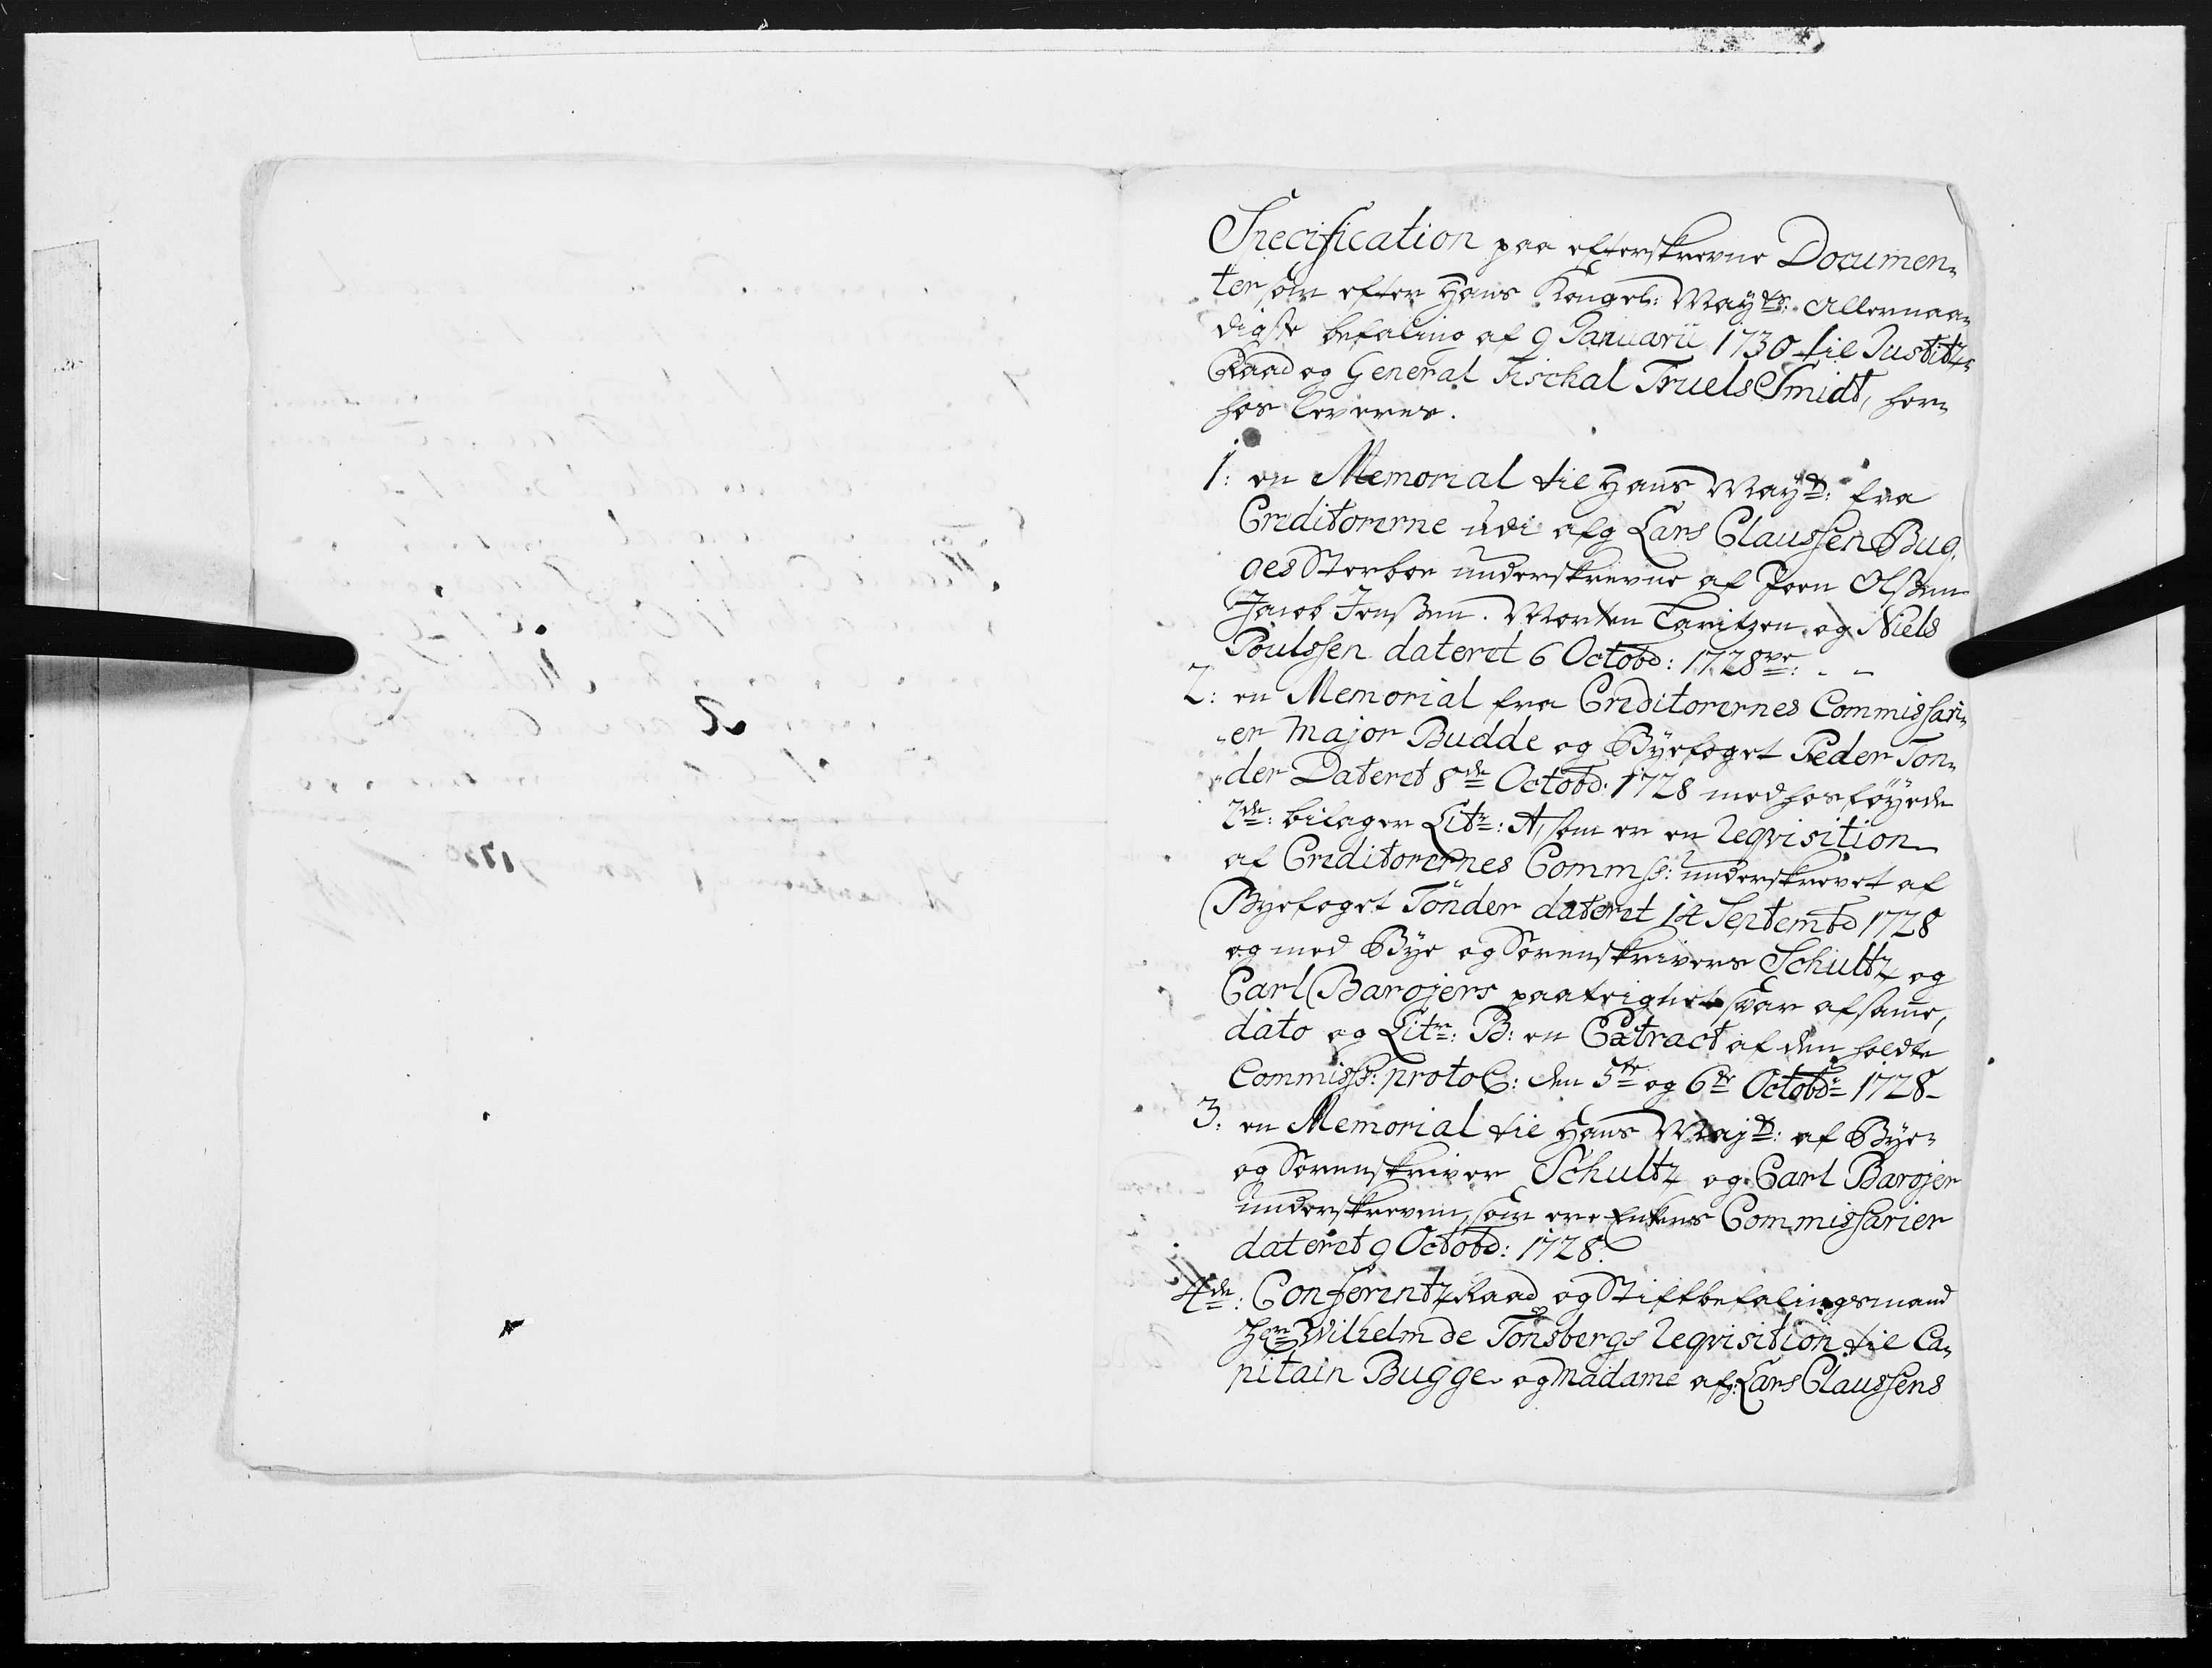 Specification paa efterskrevne Documen-
ter, som efter Hans Kongel: Mayts: Allernaa-
digste befaling af 9 Januarii 1730 til Justitz-
Raad og General Fischal Truels Smidt, her-
hos leveres.
1: en Memorial til Hans Mayts: fra
Creditorerne udi afg Lars Claussen Bug-
ges Sterboe underskrevne af Joen Olssen
Jacob Jenssen. Morten Laritzen og Niels
Poulssen dateret 6 Octobr: 1728
2: en Memorial fra Creditorernes Commissari-
er Major Budde og Byefoget Peder Tøn-
der Dateret 8de Octobr: 1728 med hosføyede
2de: bilager Litr: A, som er en Reqvisition
af Creditorernes Commss: underskrevet af
Byefoget Tönder dateret 14 Septembr 1728
og med Bye og Sorenskrivers Schultz og
Carl Barojers paateignet svar af same,
dato og Litr: B: en Extract af den holdte
Commiss: protoc: den 5te og 6te Octobr: 1728-
3: en Memorial til Hans Majts: af Bye-
og Sorenskriver Schultz og Carl Barojer
underskreven, som ere Enkens Commissarier
dateret 9 Octobr: 1728.
4de: Conferentz Raad og Stiftbefalingsmand
Hr Wilhelm de Tonsbergs Reqvisition til Ca-
pitain Bugge og Madame afg: Lars Claussens